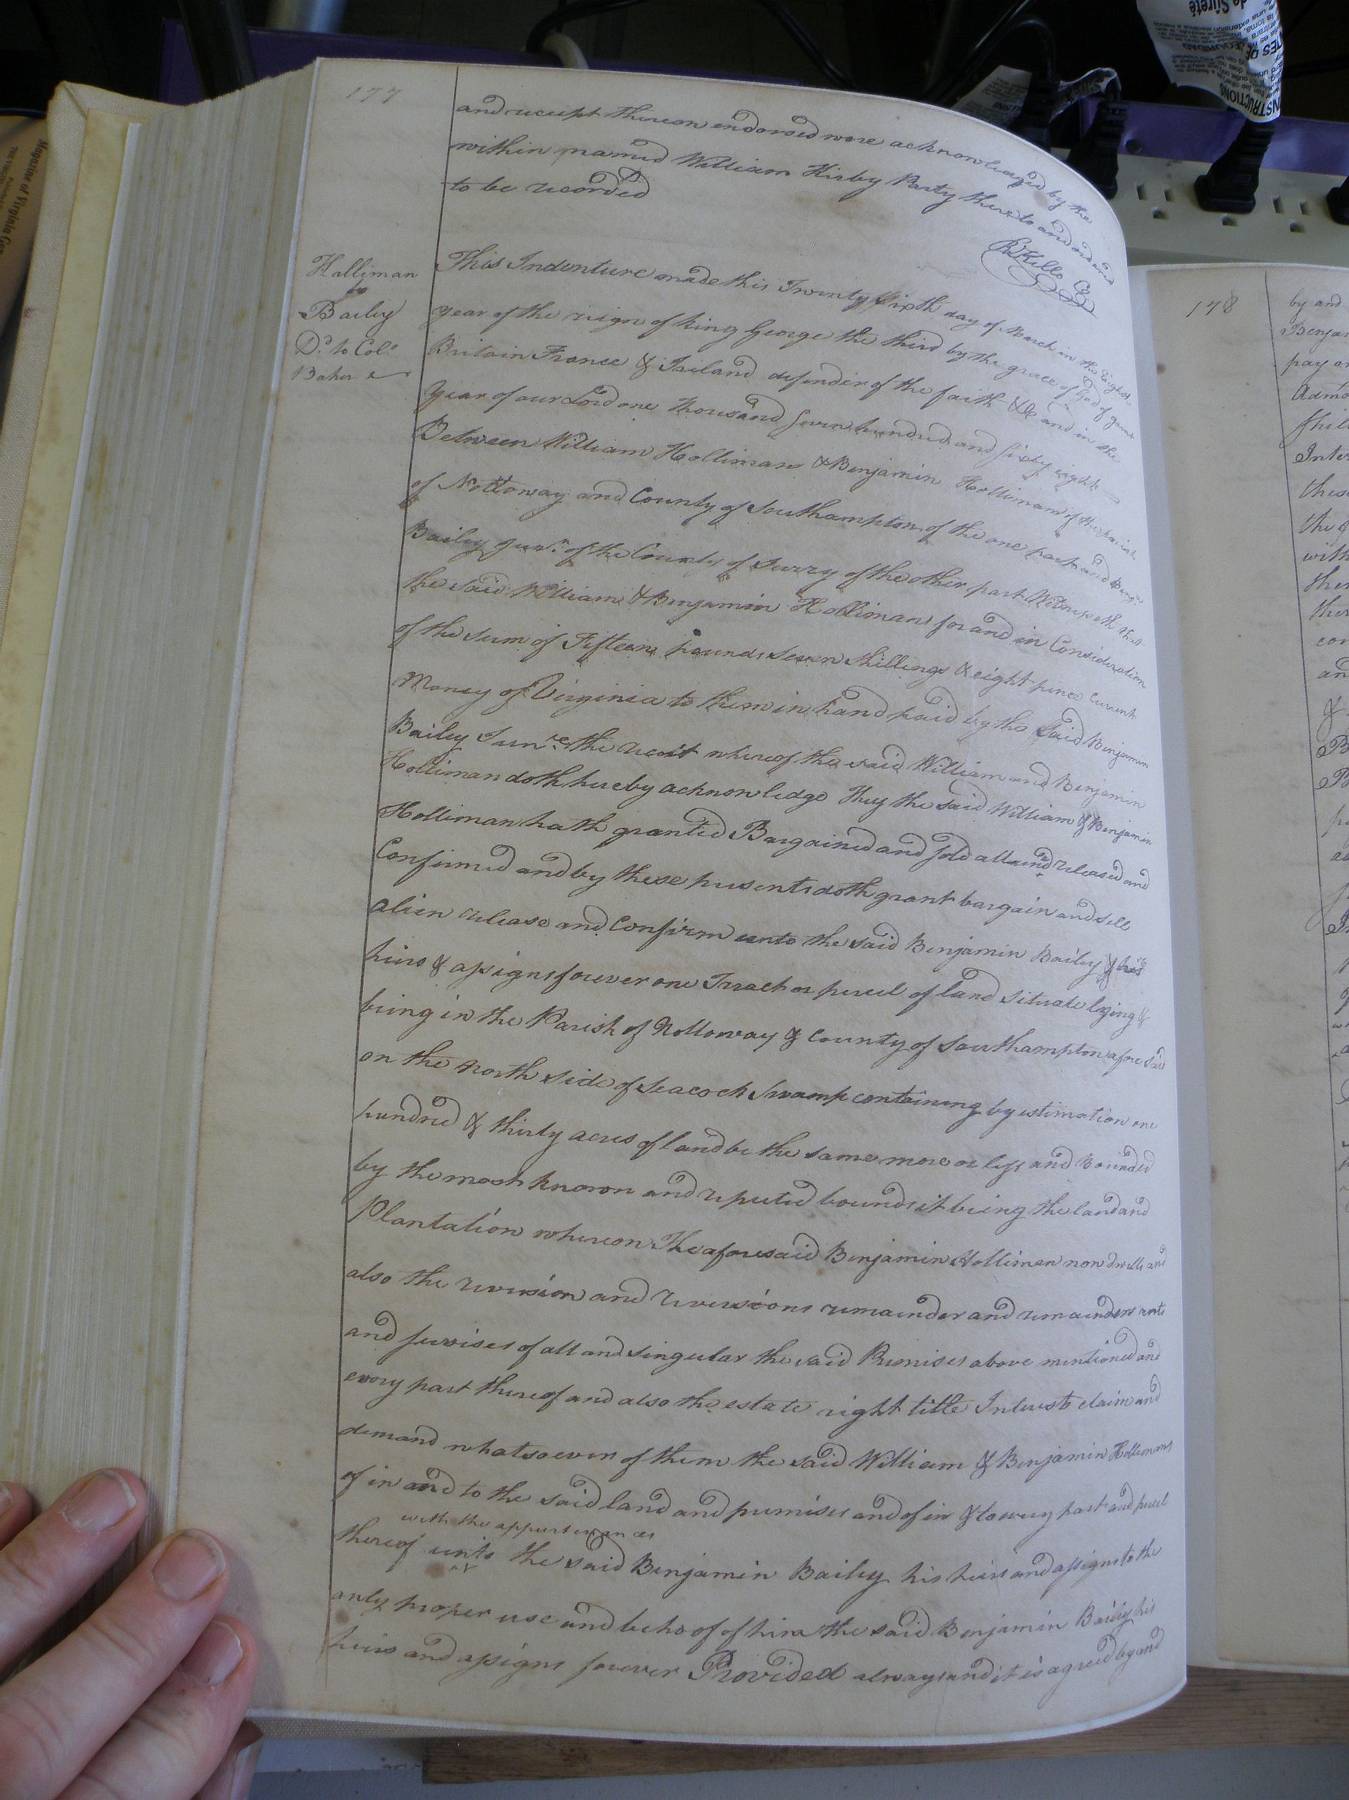 177
and receipt thereon endorsed were acknowledged by the
within named William Kirby Party thereto and ord and
to be recorded
RKello C
Halliman
to
Bailey
Dd to Colo
Baker
This Indenture made this Twenty Sixth day of March in the Eighth
year of the reign of King George the third by the grace of God of great
Britain France & Ireland defender of the faith &c and in the
year of our Lord one thousand seven hundred and sixty eight
Between William Holliman & Benjamin Holliman of the parish
of Nottoway and County of Southampton of the one part and Benjn
Bailey junr of the County of Surry of the other part Witnesseth that
the said William & Benjamin Hollimans for and in Consideration
of the Sum of Fifteen pounds seven shillings & eight pence Current
Money of Virginia to them in hand paid by the said Benjamin
Bailey Junr the receit whereof the said William and Benjamin
Holliman doth hereby acknowledge They the said William & Benjamin
Holliman hath granted Bargained and sold aliened released and
Confirmed and by these presents doth grant bargain and sell
alien release and Confirm unto the said Benjamin Bailey & his
heirs & assigns forever one Tract or percel of land situate lying &
being in the Parish of Nottoway & County of Southampton aforesaid
on the north side of Seacock Swamp containing by estimation one
hundred & thirty acres of land be the same more or less and Bounded
by the most known and reputed bounds it being the land and
Plantation whereon The aforesaid Benjamin Holliman now dwells and
also the revirsion and reversions remainder and remainders rents
and servises of all and singular the said Premises above mentioned and
every part thereof and also the estate right title Interest claim and
demand whatsoever of them the said William & Benjamin Hollimans
of in and to the said land and premises and of in & to every part and percel
with the appurtenances
thereof unto the said Benjamin Bailey his heirs and assigns to the
only proper use and behoof of him the said Benjamin Baily his
heirs and assigns forever Provided always and it is agreed by and
178
by and
Benja
pay or
Admo
shill
Inter
these
the
with
ther
and
&
INSTRUCTIONS
de Sûreté
Magazine of Virginia Gen